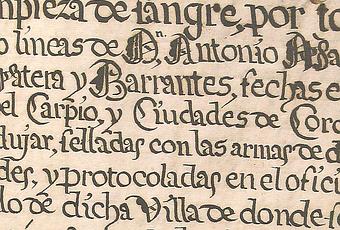 mpieza de sangre, por to
o líneas de D.n Antonio
patera y Barrantes, fechas e
el Carpio, y Ciudades de Cord
dujar, selladas con las armas de d
des, y protocoladas en el ofici
lo de dicha Villa de donde